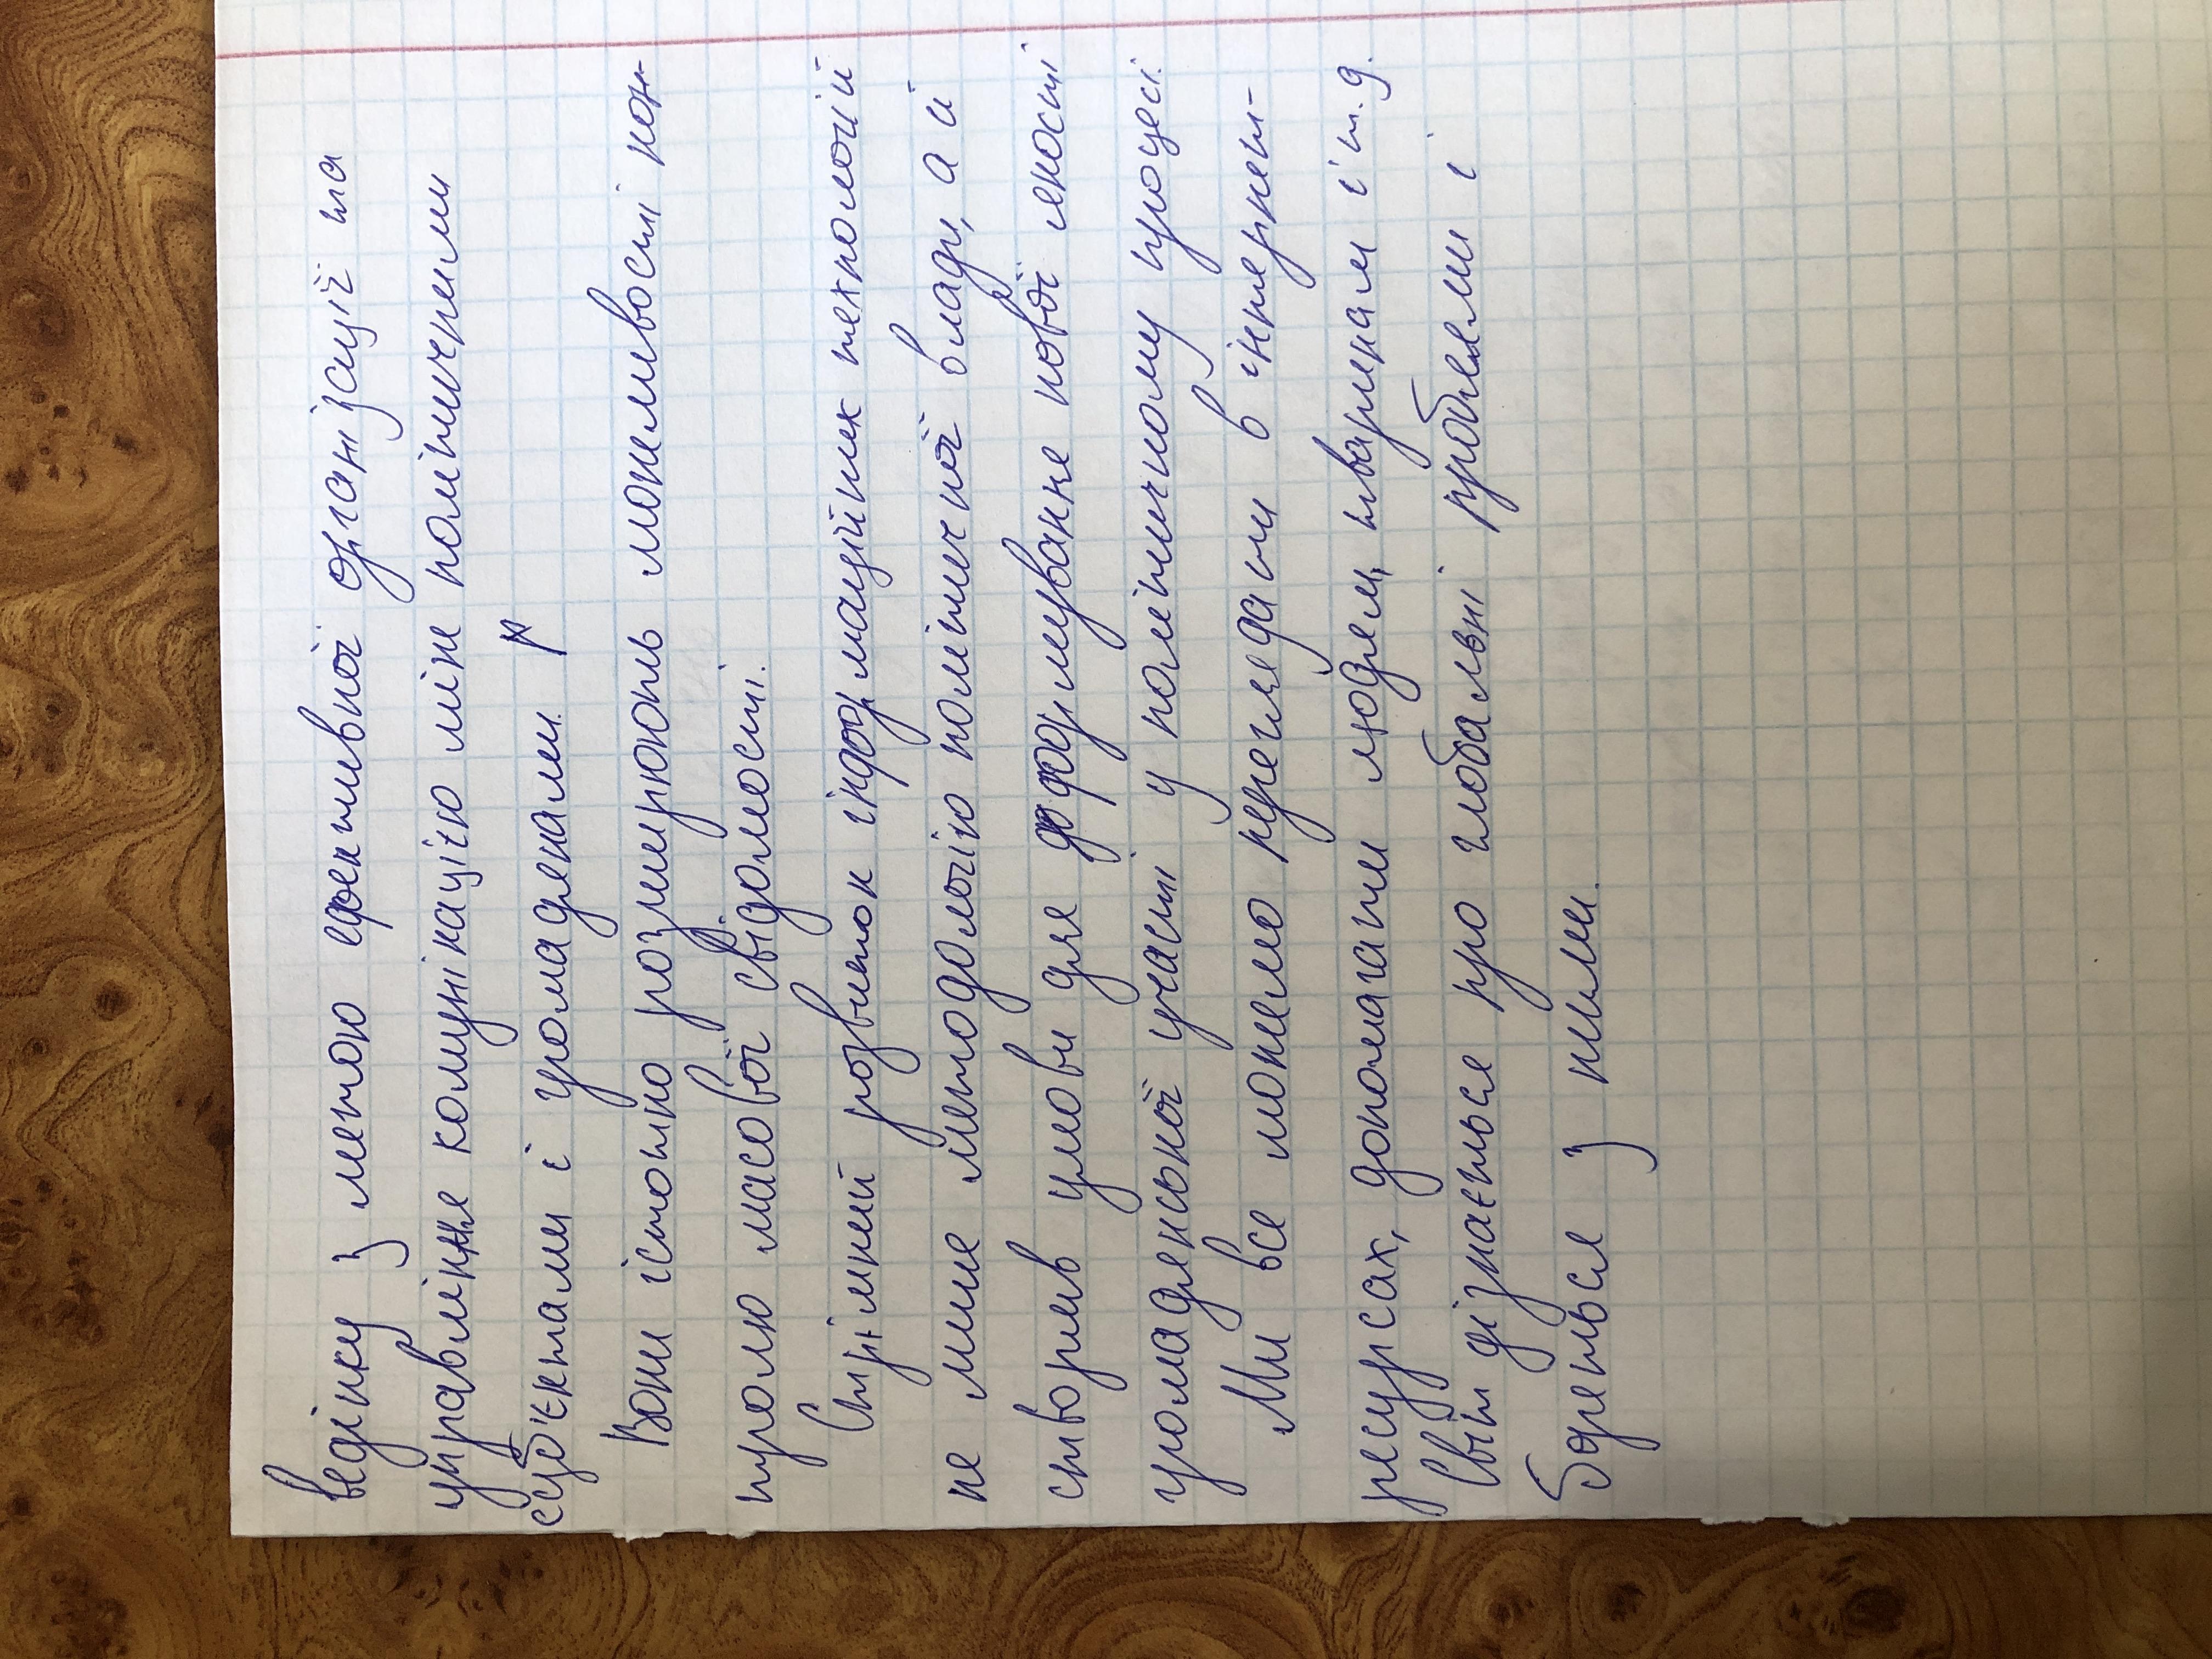 ведінку з метою ефективної організації та
управління комунікацією між політичними
суб'єктами і громадянами.
Вони істотно розширюють можливості кон-
тролю масової свідомості.
Стрімкий розвиток інформаційних технологій
не лише методологію політичної влади, а й
створив умови для формування нової якості
громадянської участі у політичному процесі.
Ми все можемо переглядати в інтернет-
ресурсах, допомагати людям, тваринам і т.д.
Світ дізнається про глобальні проблеми і
бореться з ними.